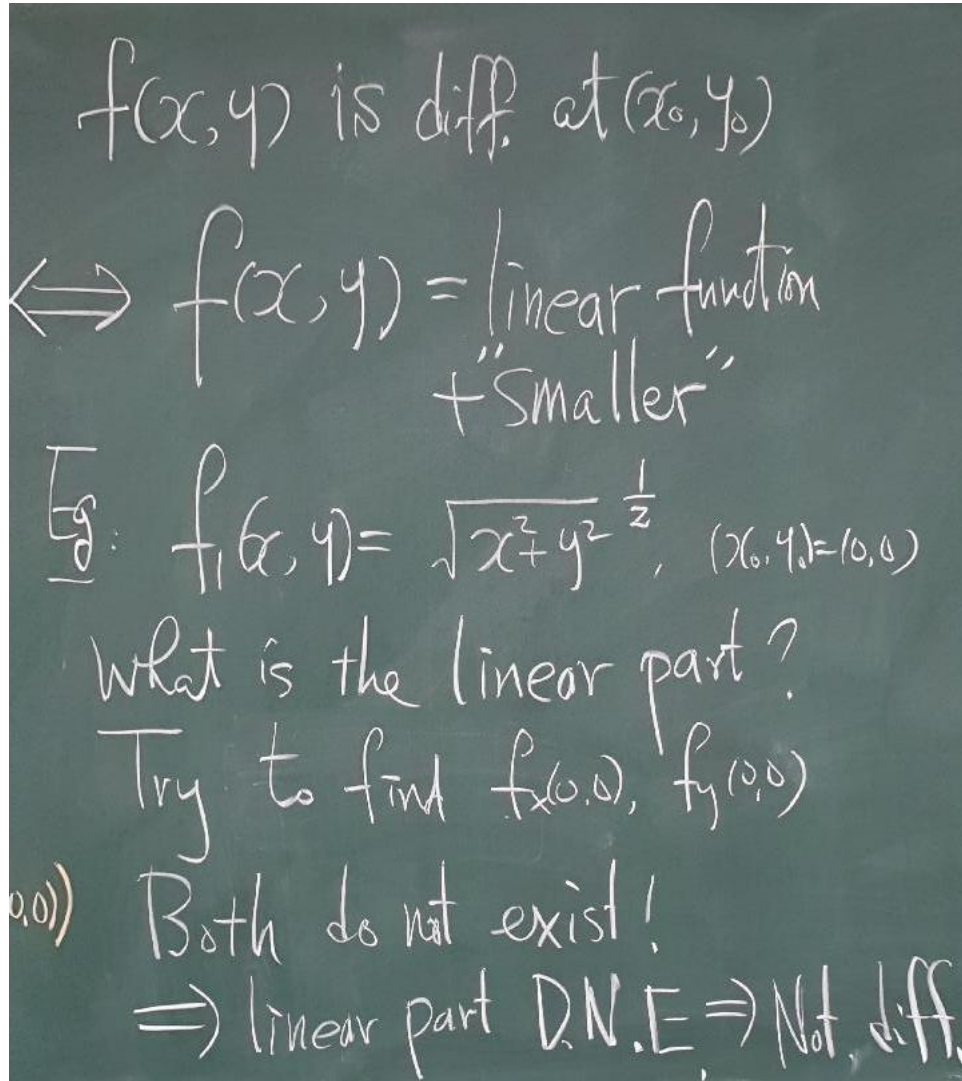 f(x,y) is diff. at (x₀, y₀)
⟺ f(x,y) = linear function
+ "smaller"
Eg: f₁(x,y) = √(x²+y²)^(1/2), (x₀,y₀)=(0,0)
What is the linear part?
Try to find fₓ(0,0), f_y(0,0)
0,0)) Both do not exist!
⟹ linear part D.N.E. ⟹ Not diff.